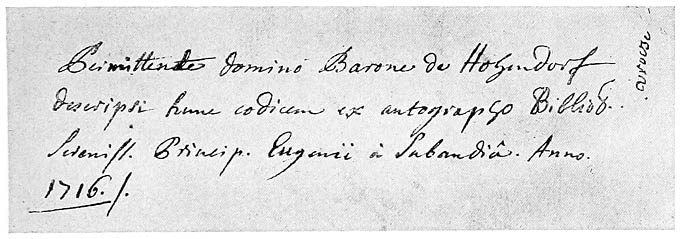 Permittente domino Barone de Hohendorf
descripsi hunc codicem ex autographo Biblioth.
Sereniss. Princip. Eugenii à Subandiâ. Anno.
1716.